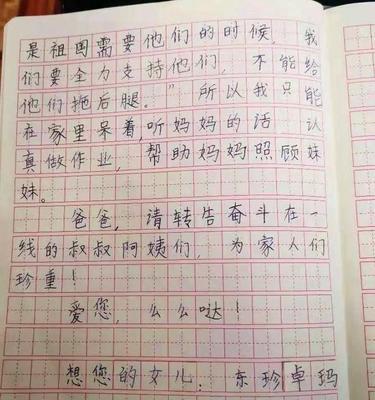 是祖国需要他们的时候，我
们要全力支持他们，不能给
他们拖后腿。”所以我只能
在家里呆着听妈妈的话，认
真做作业，帮助妈妈照顾妹
妹。
爸爸，请转告奋斗在一
线的叔叔阿姨们，为家人们
珍重！
爱您，么么哒！
想您的女儿：东珍卓玛